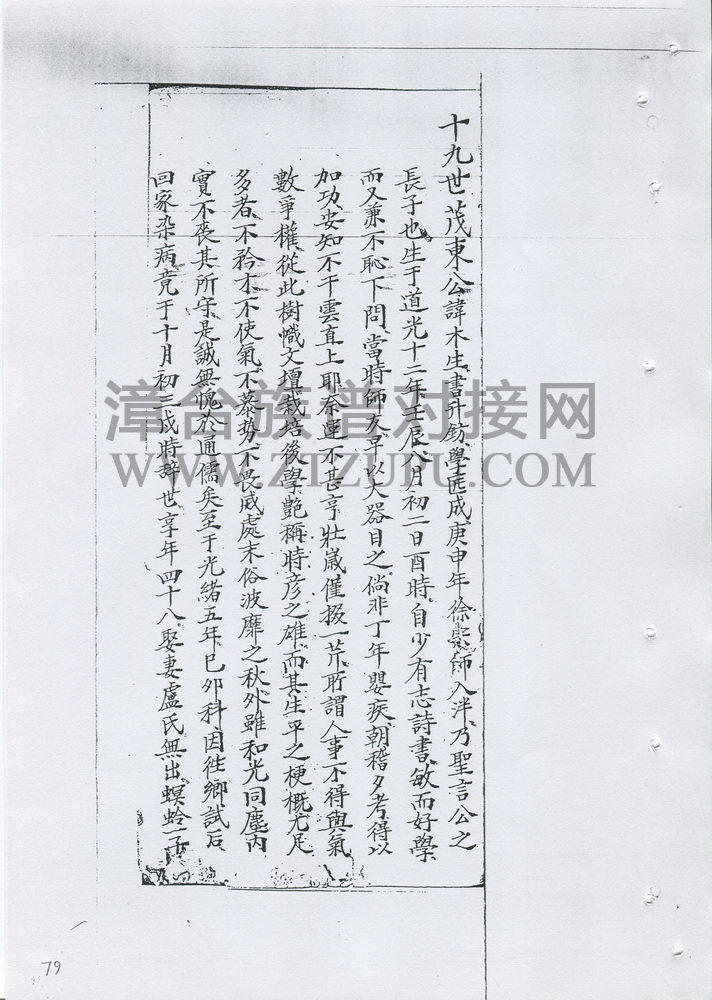 十九世茂東公諱木生書升鈁學匹成庚申年徐宗師入泮乃聖言公之
長子也生于道光十二年壬辰八月初二日酉時自少有志詩書敏而好學
而又兼不恥下問當時師友早以大器目之倘非丁年嬰疾朝稽夕考得以
加功安知不干雲直上耶奈運不甚亨壯歲僅掇一芹所謂人事不得與氣
數爭權從此樹幟文壇栽培後學艷稱時彥之雄而其生平之梗概尤足
多者不矜才不使氣不慕势不畏威處末俗波靡之秋外雖和光同塵內
實不喪其所守是誠無愧於通儒矣至于光緒五年己卯科因往鄉試后
回家染病竟于十月初二戌時辭世享年四十八娶妻盧氏無出螟蛉一子
漳台族谱对接网
WWW.ZTZUPU.COM
79